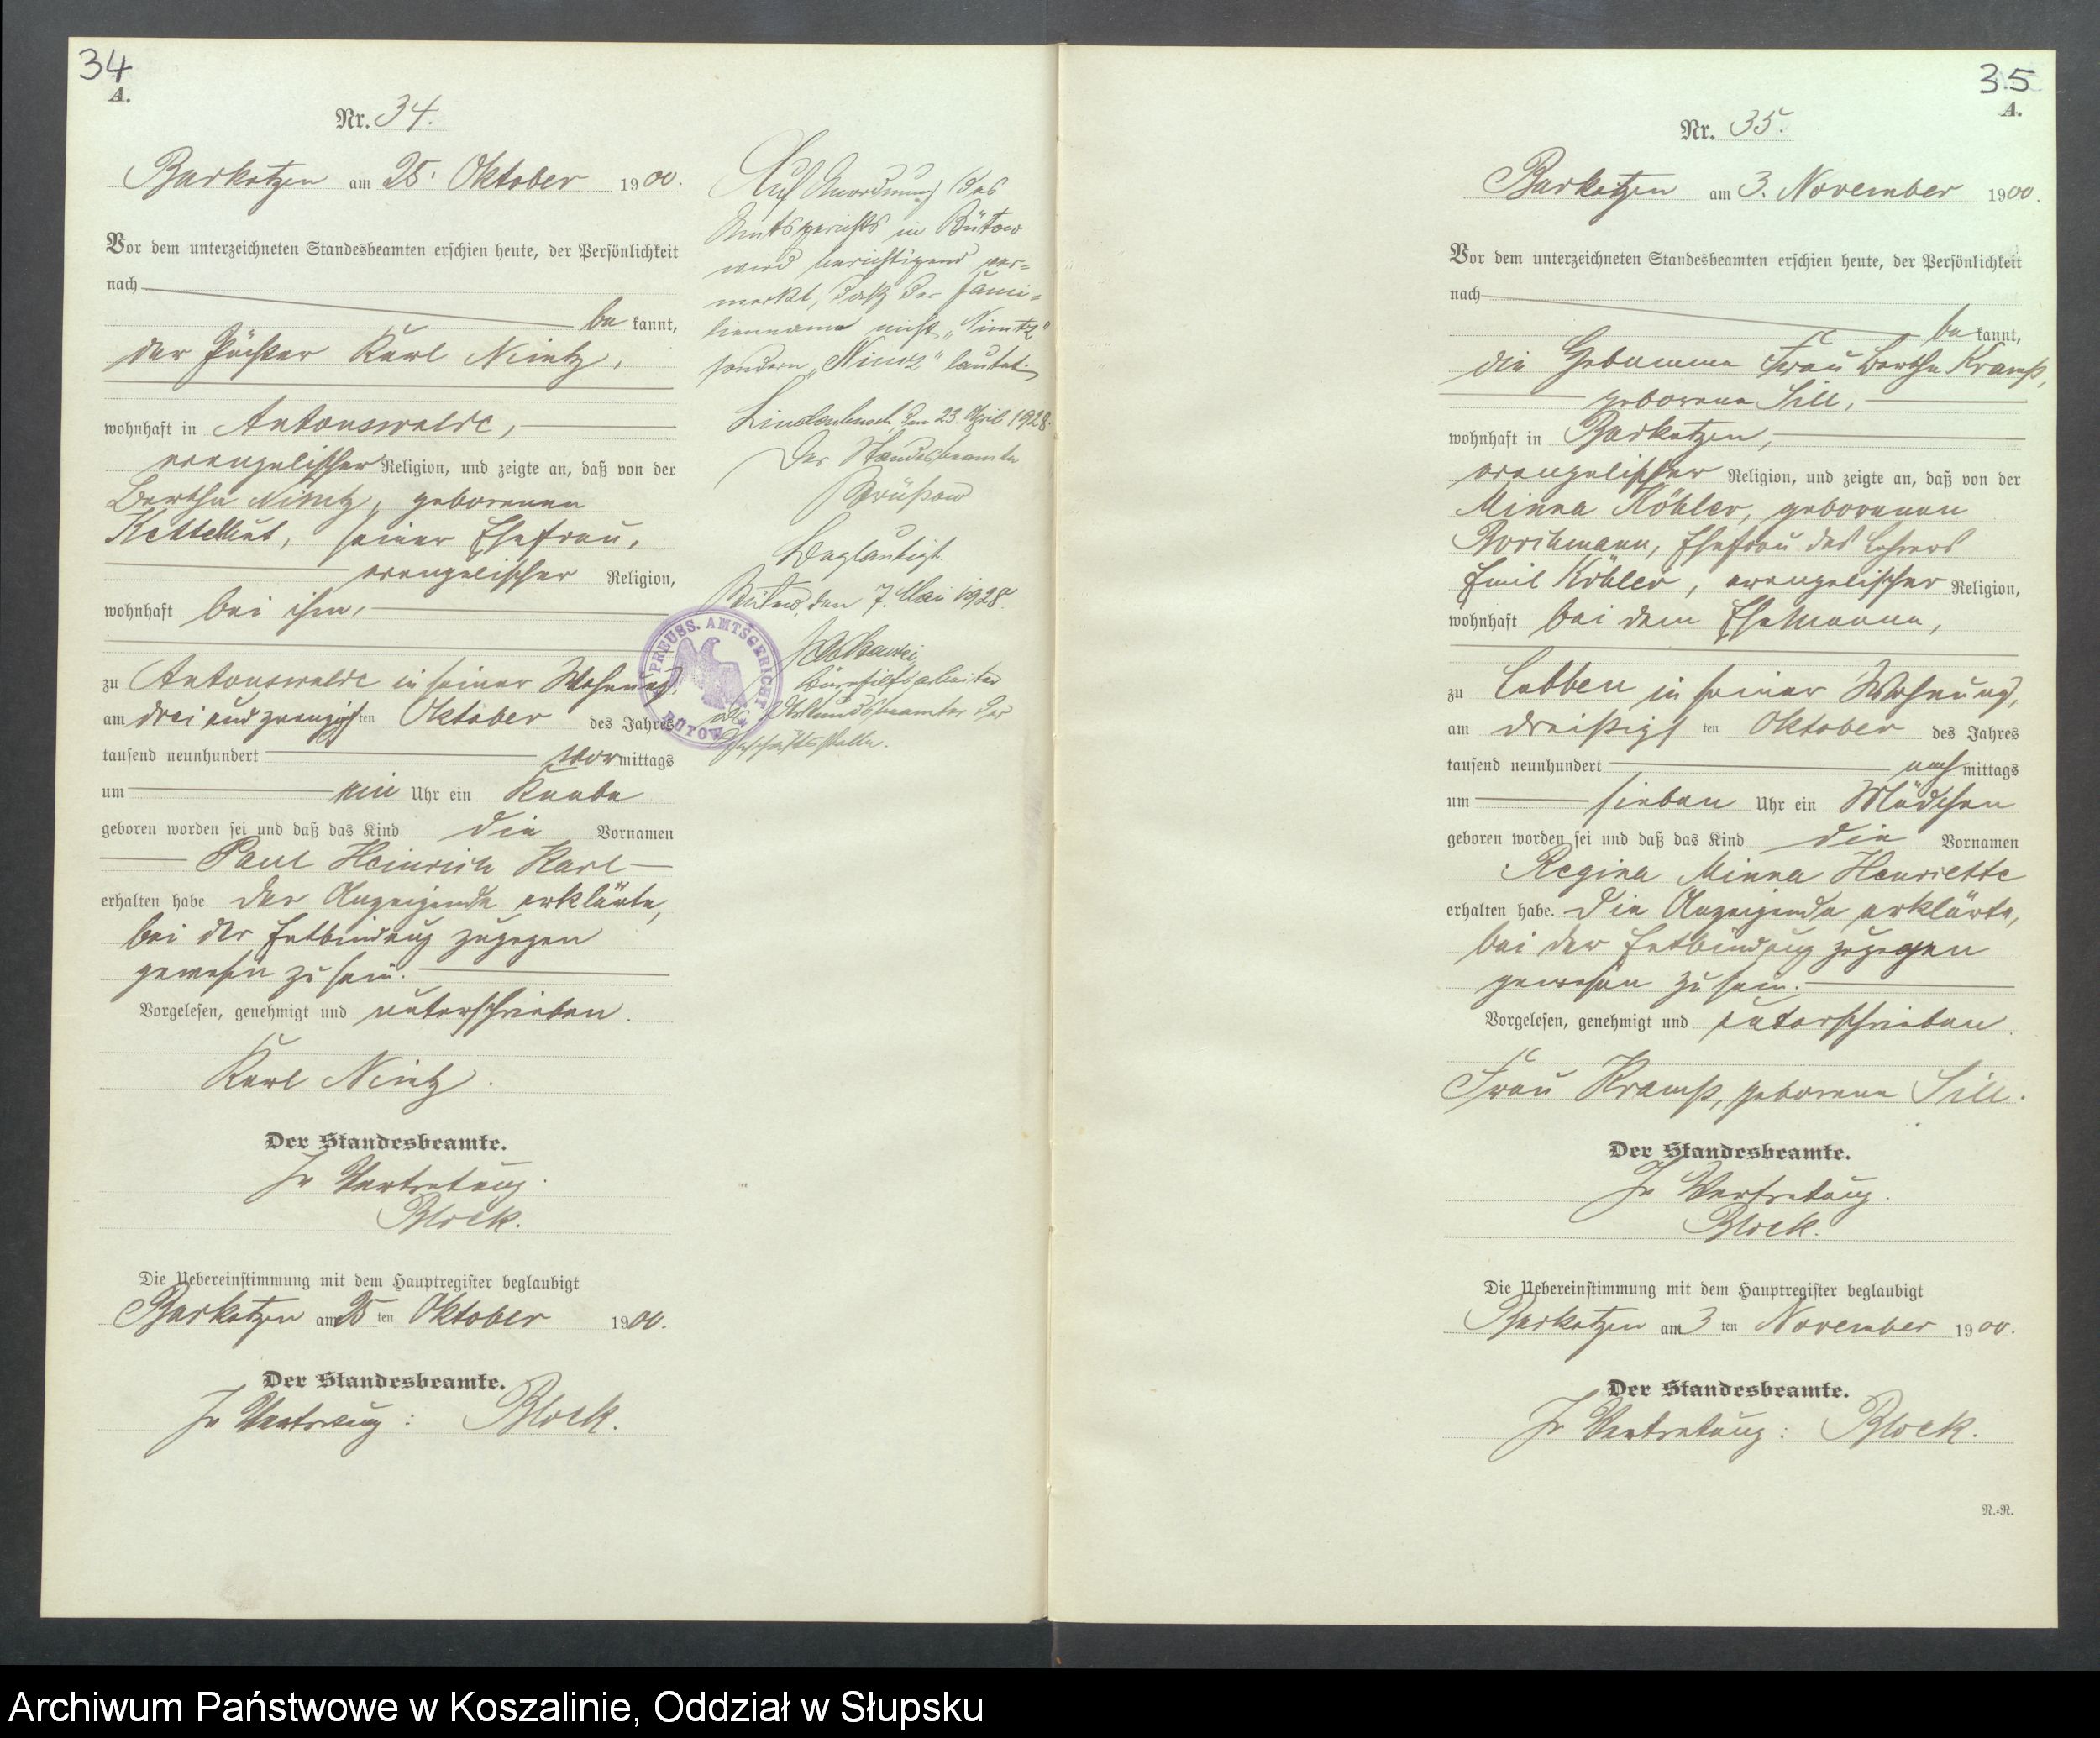 34
A.
Nr. 34.
Barkotzen am 25. Oktober 1900.
Vor dem unterzeichneten Standesbeamten erschien heute, der Persönlichkeit
nach
be kannt,
der Pächter Karl Nintz,
wohnhaft in Antonswalde,
evangelischer Religion, und zeigte an, daß von der
Bertha Nimtz, geborenen
Kettelhut, seiner Ehefrau,
evangelischer Religion,
wohnhaft bei ihm,
zu Antonswalde in seiner Wohnung
am drei und zwanzigsten Oktober des Jahres
tausend neunhundert vormittags
um ein Uhr ein Knabe
geboren worden sei und daß das Kind die Vornamen
Paul Heinrich Karl
erhalten habe. Der Anzeigende erklärte,
bei der Entbindung zugegen
gewesen zu sein.
Vorgelesen, genehmigt und unterschrieben.
Karl Nintz.
Der Standesbeamte.
In Vertretung.
Block.
Die Uebereinstimmung mit dem Hauptregister beglaubigt
Barkotzen am 25 ten Oktober 1900.
Der Standesbeamte.
In Vertretung: Block.
Auf Anordnung des
Amtsgerichts in Bütow
wird berichtigend ver=
merkt, daß der Fami=
lienname nicht „Nimtz“
sondern „Nimz“ lautet.
den 23. April 1928.
Der Standesbeamte
Beglaubigt.
Bütow, den 7. Mai 1928.
Bürohilfsarbeiter
als Urkundsbeamter der
Geschäftsstelle.
PREUSS. AMTSGERICHT
BÜTOW
35
A.
Nr. 35.
Barkotzen am 3. November 1900.
Vor dem unterzeichneten Standesbeamten erschien heute, der Persönlichkeit
nach
be kannt,
die Hebamme Frau Bertha Kramp,
geborene Sill,
wohnhaft in Barkotzen,
evangelischer Religion, und zeigte an, daß von der
Minna Köhler, geborenen
Borchmann, Ehefrau des Lehrers
Emil Köhler, evangelischer Religion,
wohnhaft bei dem Ehemanne,
zu Lobben in seiner Wohnung,
am dreißigsten Oktober des Jahres
tausend neunhundert nachmittags
um sieben Uhr ein Mädchen
geboren worden sei und daß das Kind die Vornamen
Regina Minna Henriette
erhalten habe. Die Anzeigende erklärte,
bei der Entbindung zugegen
gewesen zu sein.
Vorgelesen, genehmigt und unterschrieben.
Frau Kramp, geborene Sill.
Der Standesbeamte.
In Vertretung.
Block.
Die Uebereinstimmung mit dem Hauptregister beglaubigt
Barkotzen am 3 ten November 1900.
Der Standesbeamte.
In Vertretung: Block.
N.=R.
Archiwum Państwowe w Koszalinie, Oddział w Słupsku